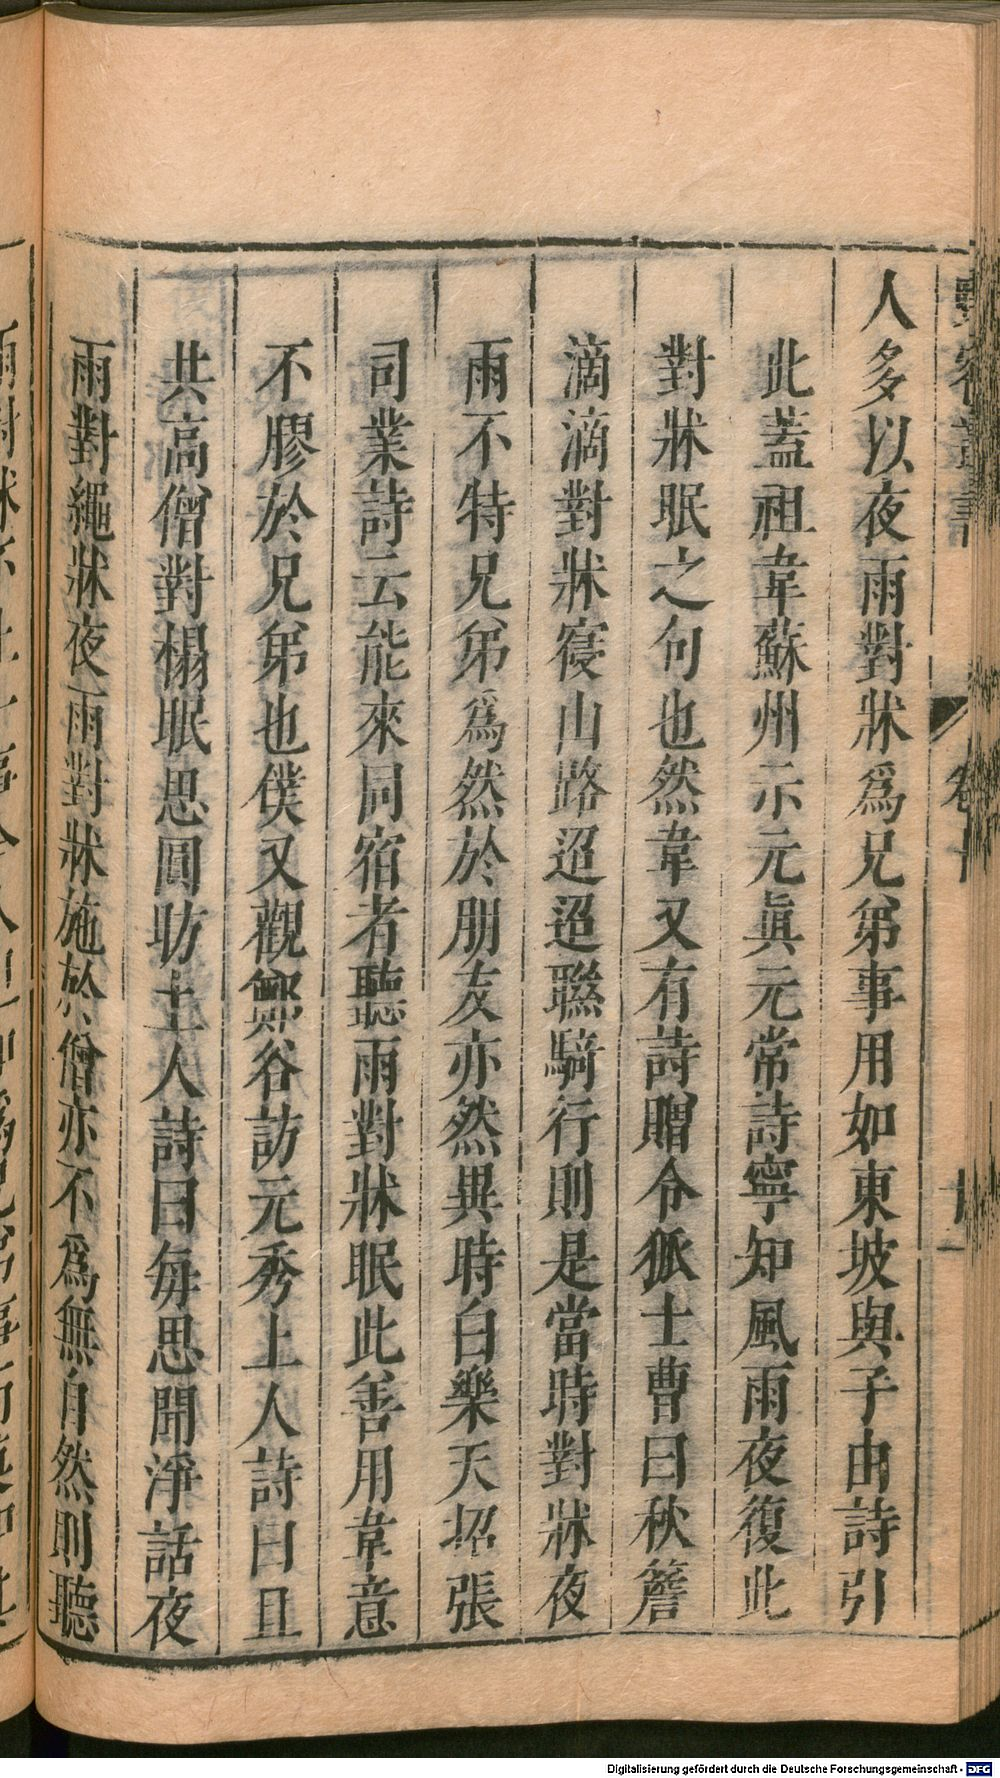 人多以夜雨對牀爲兄弟事用如東坡與子由詩引
此蓋祖韋蘇州示元眞元常詩寧知風雨夜復此
對牀眠之句也然韋又有詩贈令狐士曹曰秋簷
滴滴對牀寑山路迢迢聯騎行則是當時對牀夜
雨不特兄弟爲然於朋友亦然異時白樂天招張
司業詩云能來同宿者聽雨對牀眠此善用韋意
不膠於兄弟也僕又觀鄭谷訪元秀上人詩曰且
共高僧對榻眠思圓昉土人詩曰每思聞淨話夜
雨對繩牀夜雨對牀施於僧亦不爲無自然則聽
Digitalisierung gefördert durch die Deutsche Forschungsgemeinschaft - DFG